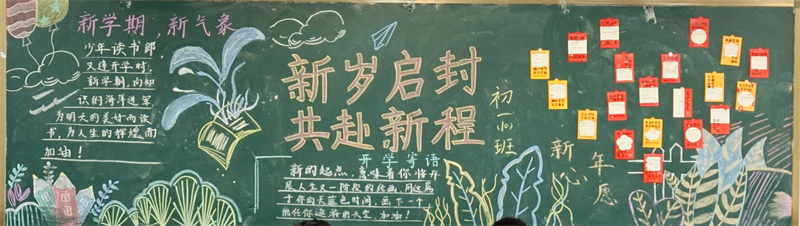 新学期，新气象
少年读书郎
又逢开学时，
新学期，向知
识的海洋进军
为明天的美好而读
书，为人生的辉煌而
加油！
新岁启封
共赴新程
初一(10)班
开学寄语
新的起点，意味着你将开
展人生又一阶段的绘画，用这属
于你的天蓝色时间，画下一个
能任你遨翔的天空，加油！
新年
心愿